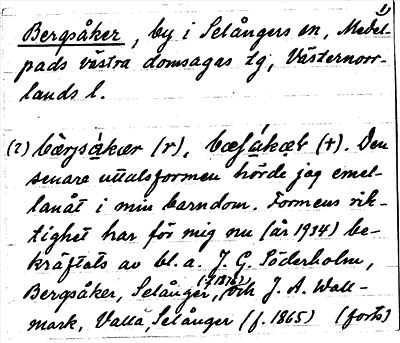 1)
Bergsåker, by i Selångers sn, Medel-
pads västra domsagas tg, Västernorr-
lands l.
(2) bærjsákær (r), bæʃákær (+). Den
senare uttalsformen hörde jag emel-
lanåt i min barndom. Formens rik-
tighet har för mig nu (år 1934) be-
kräftats av bl.a. J. G. Söderholm,
Bergsåker, Selånger, (f. 1876) och J. A. Wall-
mark, Valla, Selånger (f. 1865) (forts)